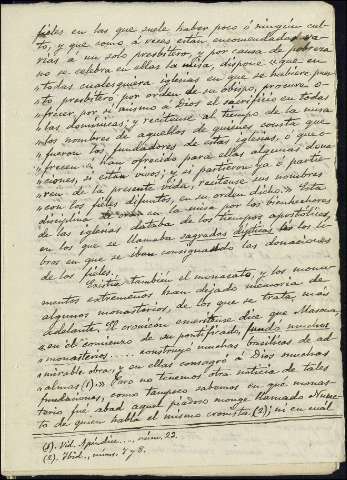 fieles en las que suele haber poco ó ningún cul-
to, y que como á veces están encomendadas va-
rias á un solo presbítero, y por causa de pobreza
no se celebra en ellas la misa, dispone que en
"todas cualesquiera iglesias en que se hubiere puesto
"to presbítero por orden de su obispo, procure o-
"frecer por sí mismo á Dios el sacrificio en todas
"las dominicas; y recítense al tiempo de la misa
"los nombres de aquellos de quienes conste que
"fueron los fundadores de estas iglesias, ó que o-
"frecen ó han ofrecido para ellas algunas dona-
"ciones, si están vivos; y si partieron ya ó partie-
"ren de la presente vida, recítense sus nombres
"con los fieles difuntos, en su orden dicho." Esta
disciplina de orar en la misa por los bienhechores
de las iglesias databa de los tiempos apostólicos,
en los que se llamaba sagrados dípticos los li-
bros en que se iban consignando las donaciones
de los fieles.
Existía también el monacato, y los monu-
mentos extremeños han dejado memoria de
algunos monasterios, de los que se trata más
adelante. El cronicón emeritense dice que Masona,
"en el comienzo de su pontificado, fundó muchos
"monasterios ..... construyó muchas basílicas de ad-
"mirable obra, y en ellas consagró á Dios muchas
"almas (1)." Pero no tenemos otra noticia de tales
fundaciones, como tampoco sabemos en qué monas-
terio fué abad aquel piadoso monge llamado Nunc-
to de quien habla el mismo cronista (2); ni en cual
(1). Vid. Apéndice ...., núm. 23.
(2). Ibid., núms. 7 y 8.